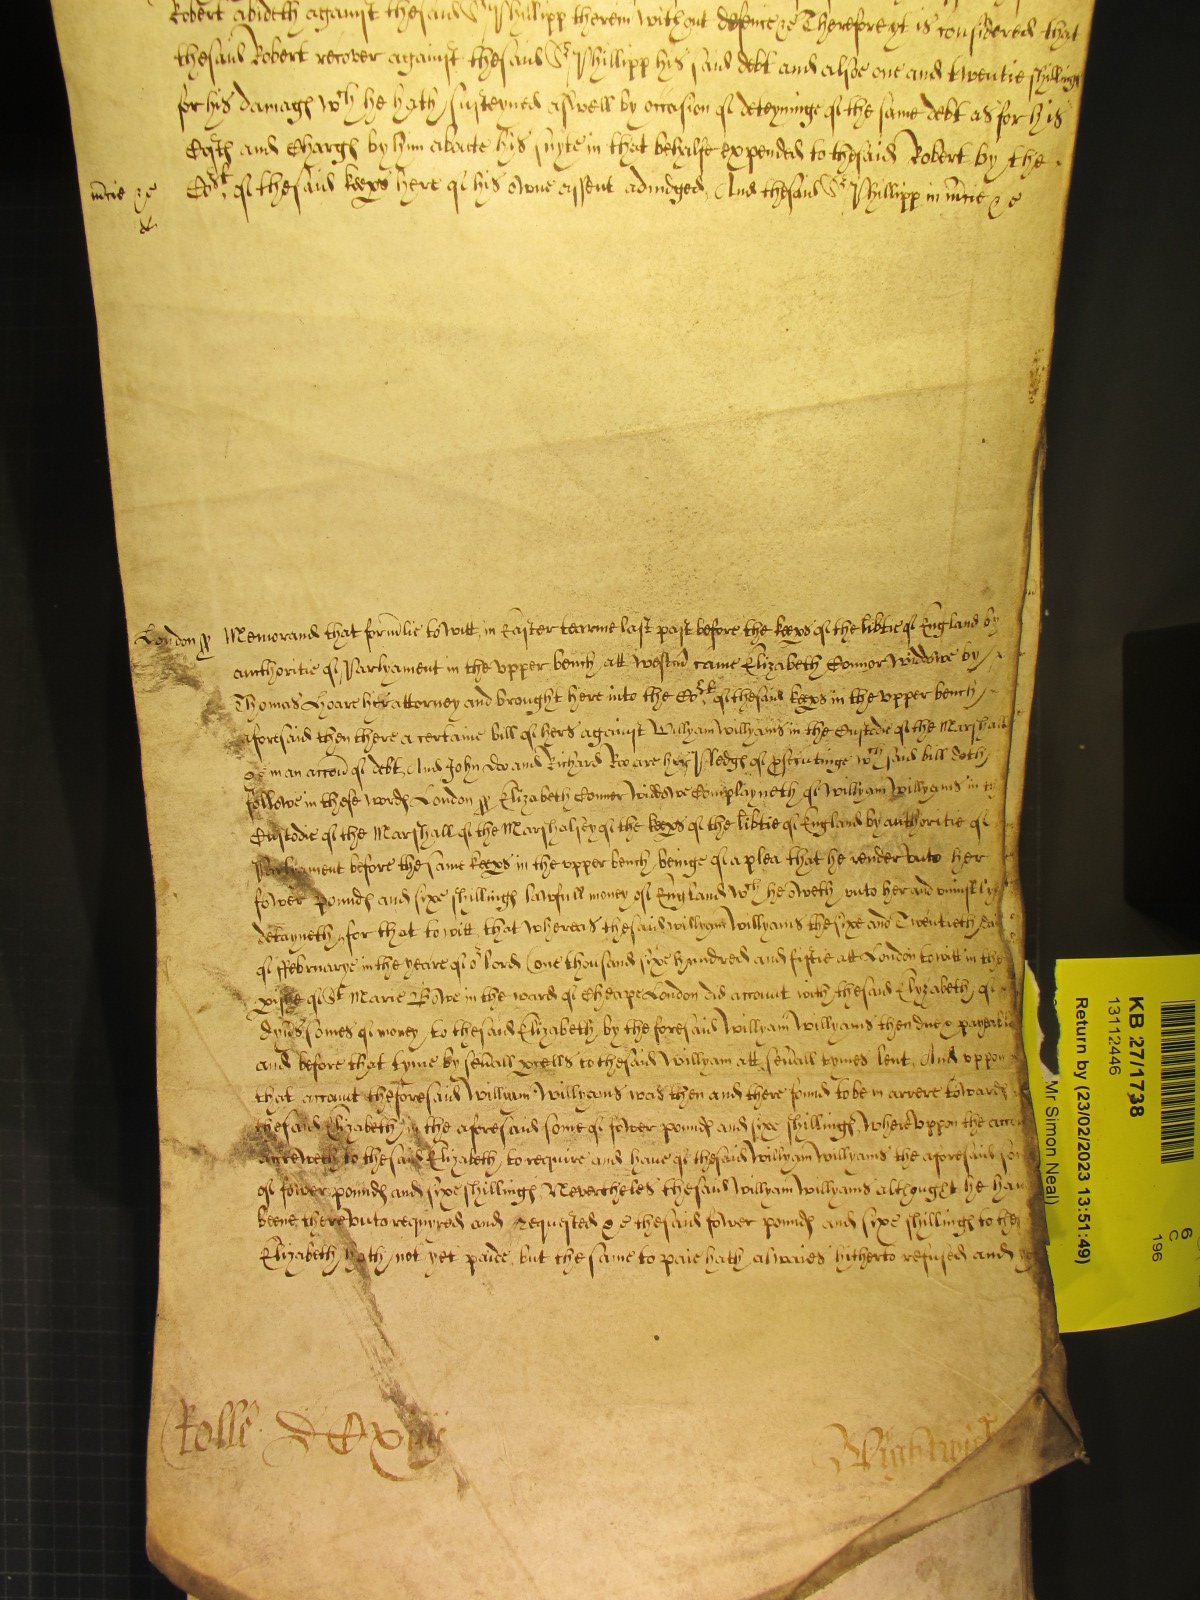 Robert abideth against thesaid Sr Phillipp therein without defence &c Therefore yt is considered that
thesaid Robert recover against thesaid Sr Phillipp his said debt and alsoe one and twentie shillings
for his damages wch he hath susteyned aswell by occasion of deteyninge of the same debt as for his
Costs and Charges by him aboute his suyte in that behalfe expended to thesaid Robert by the
mcie &c Cort of thesaid keeps here of his owne assent adiudged, And thesaid Sr Phillipp in mcie &c
London ss Memorand that formlie to witt in Easter tearme last past before the keeps of the libtie of England by
authoritie of Parlyament in the vpper bench att Westm came Elizabeth Conner Widdowe by
Thomas Hoare her attorney and brought here into the Cort of thesaid keeps in the vpper bench
aforesaid then there a certaine bill of hers against Willyam Willyams in the Custodie of the Marshall
&c in an accon of debt, And John Doo and Richard Roo are her Pledges of psecutinge wch said bill doth
followe in these words London ss Elizabeth Conner widdowe Complayneth of Willyam Willyams in
Custodie of the Marshall of the Marshalsey of the keeps of the libtie of England by authoritie of
Parlyament before the same keeps in the vpper bench, beinge of a plea that he render vnto her
fower pounds and sixe shillings lawfull money of England wch he oweth vnto her and uniustly
detayneth, for that to witt, that whereas thesaid willyam Willyams the sixe and Twentieth day
of ffebruarye in the yeare of or lord one thousand sixe hundred and fiftie att London to witt in the
pishe of St Marie Bowe in the ward of Cheape London did account with thesaid Elyzabeth, of
dyvrs somes of money, to thesaid Elizabeth by the foresaid Willyam Willyams then due & payable
and before that tyme by sevall pcells to thesaid Willyam att sevall tymes lent, And vppon
that account theforesaid Willyam Willyams was then and there found to be in arrere towards
thesaid Elizabeth, in the aforesaid some of fower pounds and sixe shillings, Wherevppon the accon
accreweth to thesaid Elizabeth, to require and haue of thesaid Willyam Willyams the aforesaid
of fower pounds and sixe shillings Nevertheles thesaid Willyam Willyams althought he
beene therevnto requyred and requested &c thesaid fower pounds and sixe shillings to the
Elizabeth, hath, not yet paide, but the same to paie hath, alwaies hitherto refused and
Rolle
Wightwick
KB 27/1738
13112446
Return by (23/02/2023 13:51:49)
Mr Simon Neal)
6
C
196